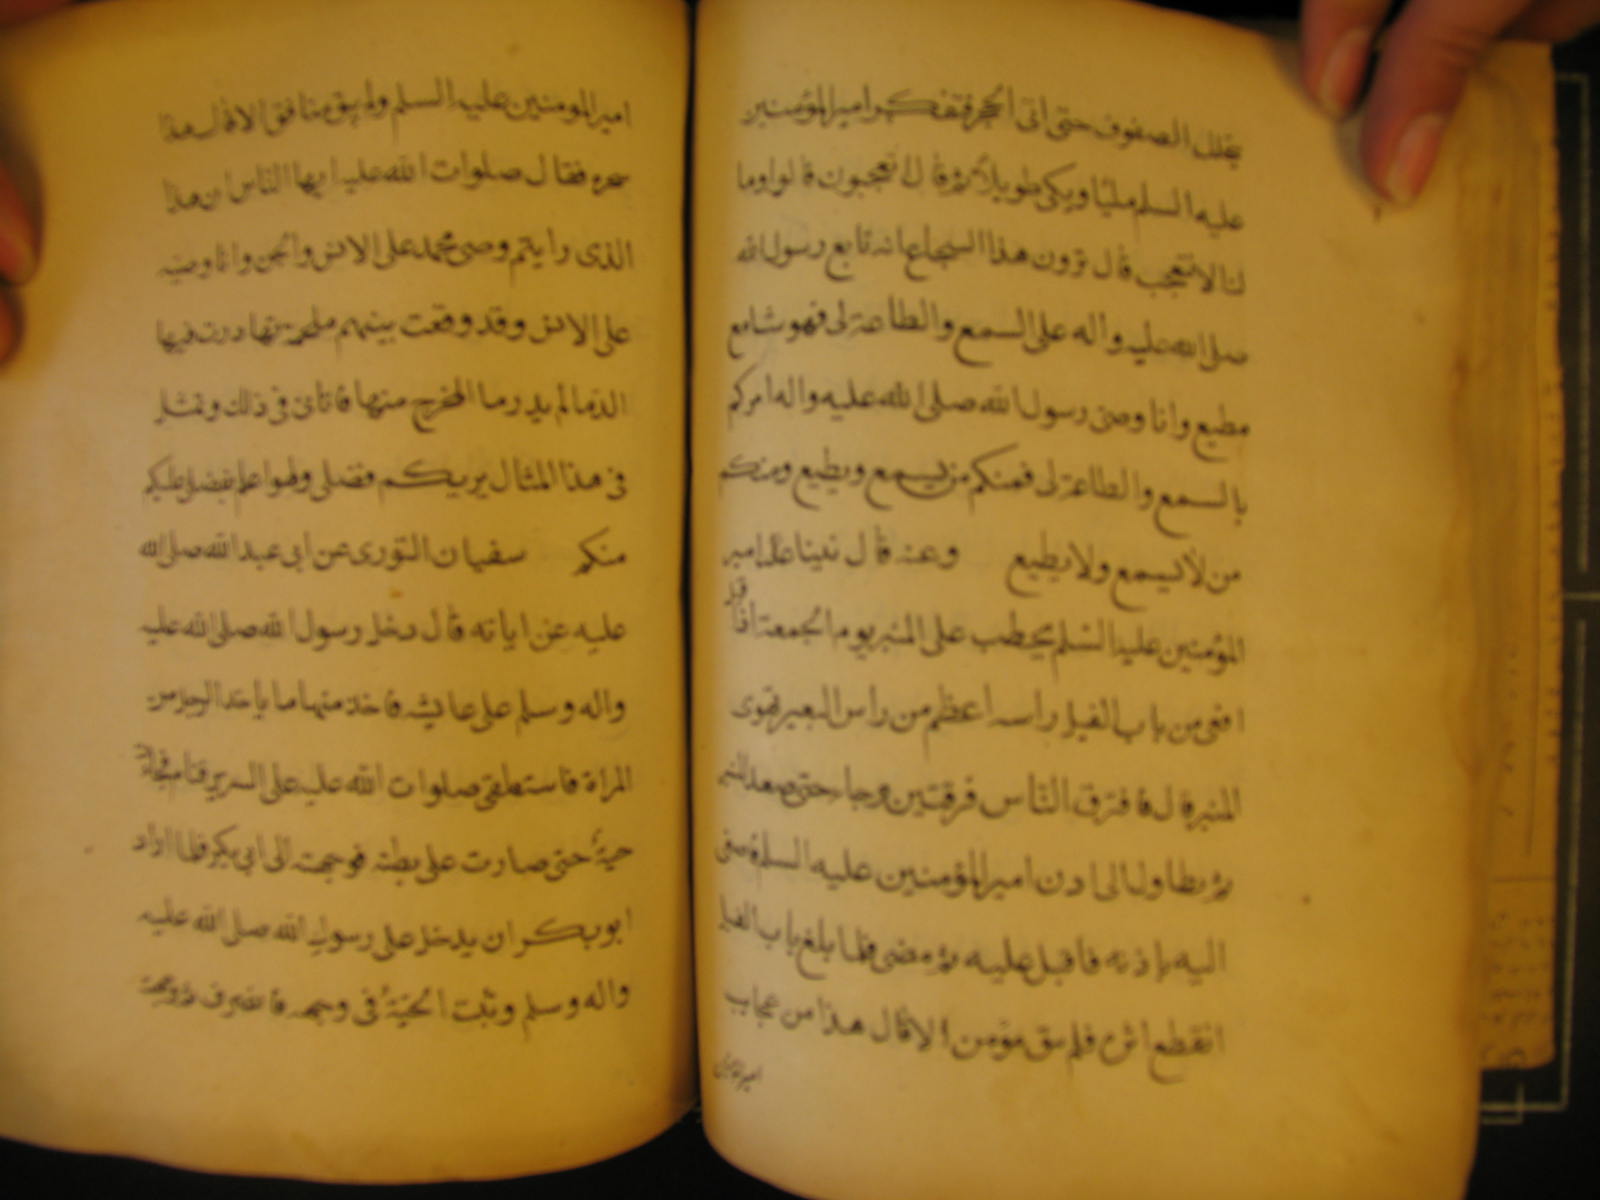 يتخلل الصفوف حتى اتى الحجرة فتفكر امير المؤمنين
عليه السلم مليا وبكى طويلا ثم قال تعجبون قالوا وما
لنا لا نتعجب قال ترون هذا الشجاع انه تابع رسول الله
صلى الله عليه واله على السمع والطاعة لى فهو سامع
مطيع وانا وصى رسول الله صلى الله عليه واله امركم
بالسمع والطاعة لى فمنكم من يسمع ويطيع ومنكم
من لا يسمع ولا يطيع وعنه قال بينا على امير
المؤمنين عليه السلم يخطب على المنبر يوم الجمعة اذ اقبل
افعى من باب الفيل راسه اعظم من راس البعير يهوى
المنبر قال فافترق الناس فرقتين وجا حتى صعد المنبر
ثم تطاول الى اذن امير المؤمنين عليه السلم فاصغى
اليه باذنه فاقبل عليه ثم مضى فلما بلغ باب الفيل
انقطع اثره فلم يبق مؤمن الا قال هذا من عجايب
امير المؤمنين
امير المومنين عليه السلم ولم يبق منافق الا قال هذا
سحره فقال صلوات الله عليه ايها الناس ان هذا
الذى رايتم وصى محمد على الانس والجن وانا وصيه
على الانس وقد وقعت بينهم ملحمة تهادرت فيها
الدما لم يدر ما المخرج منها فاتانى فى ذلك وتمثل
فى هذا المثال يريكم فضلى ولهوا علم بفضلى عليكم
منكم سفيان الثورى عن ابى عبد الله صلى الله
عليه عن ابائه قال دخل رسول الله صلى الله عليه
واله وسلم على عايشه فاخذ منها ما ياخذ الرجل من
المراة فاستلقى صلوات الله عليه على السرير فنام فجائة
حية حتى صارت على بطنه فوجهت الى ابى بكر فلما اراد
ابو بكر ان يدخل على رسول الله صلى الله عليه
واله وسلم وثبت الحية فى وجهه فانصرف ثم وجهت